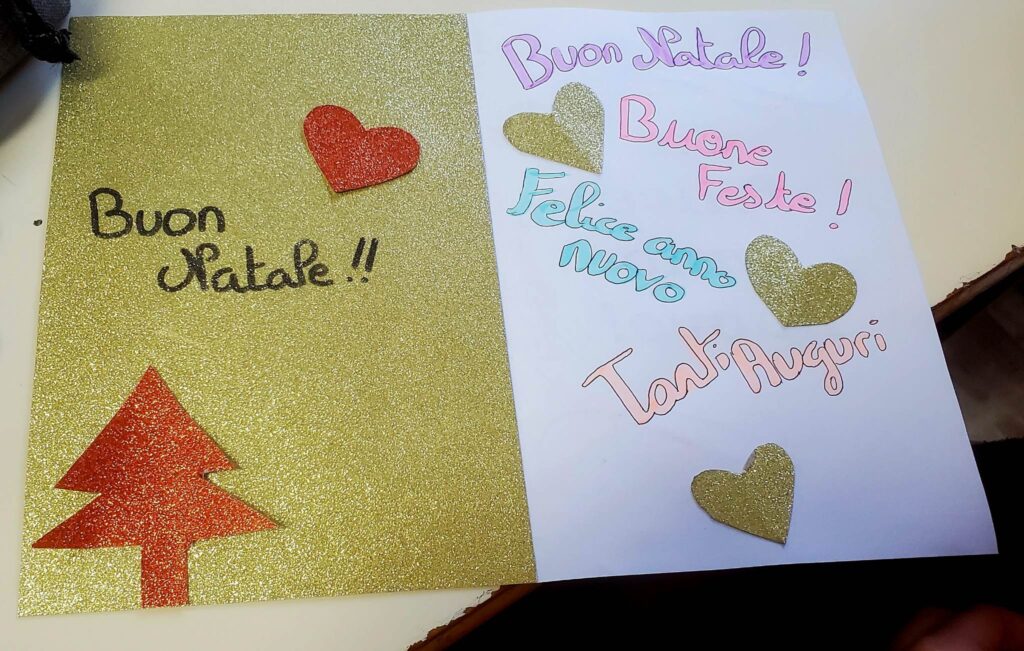 Buon
Natale!!
Buon Natale!
Buone
Feste!
Felice anno
nuovo
Tanti Auguri